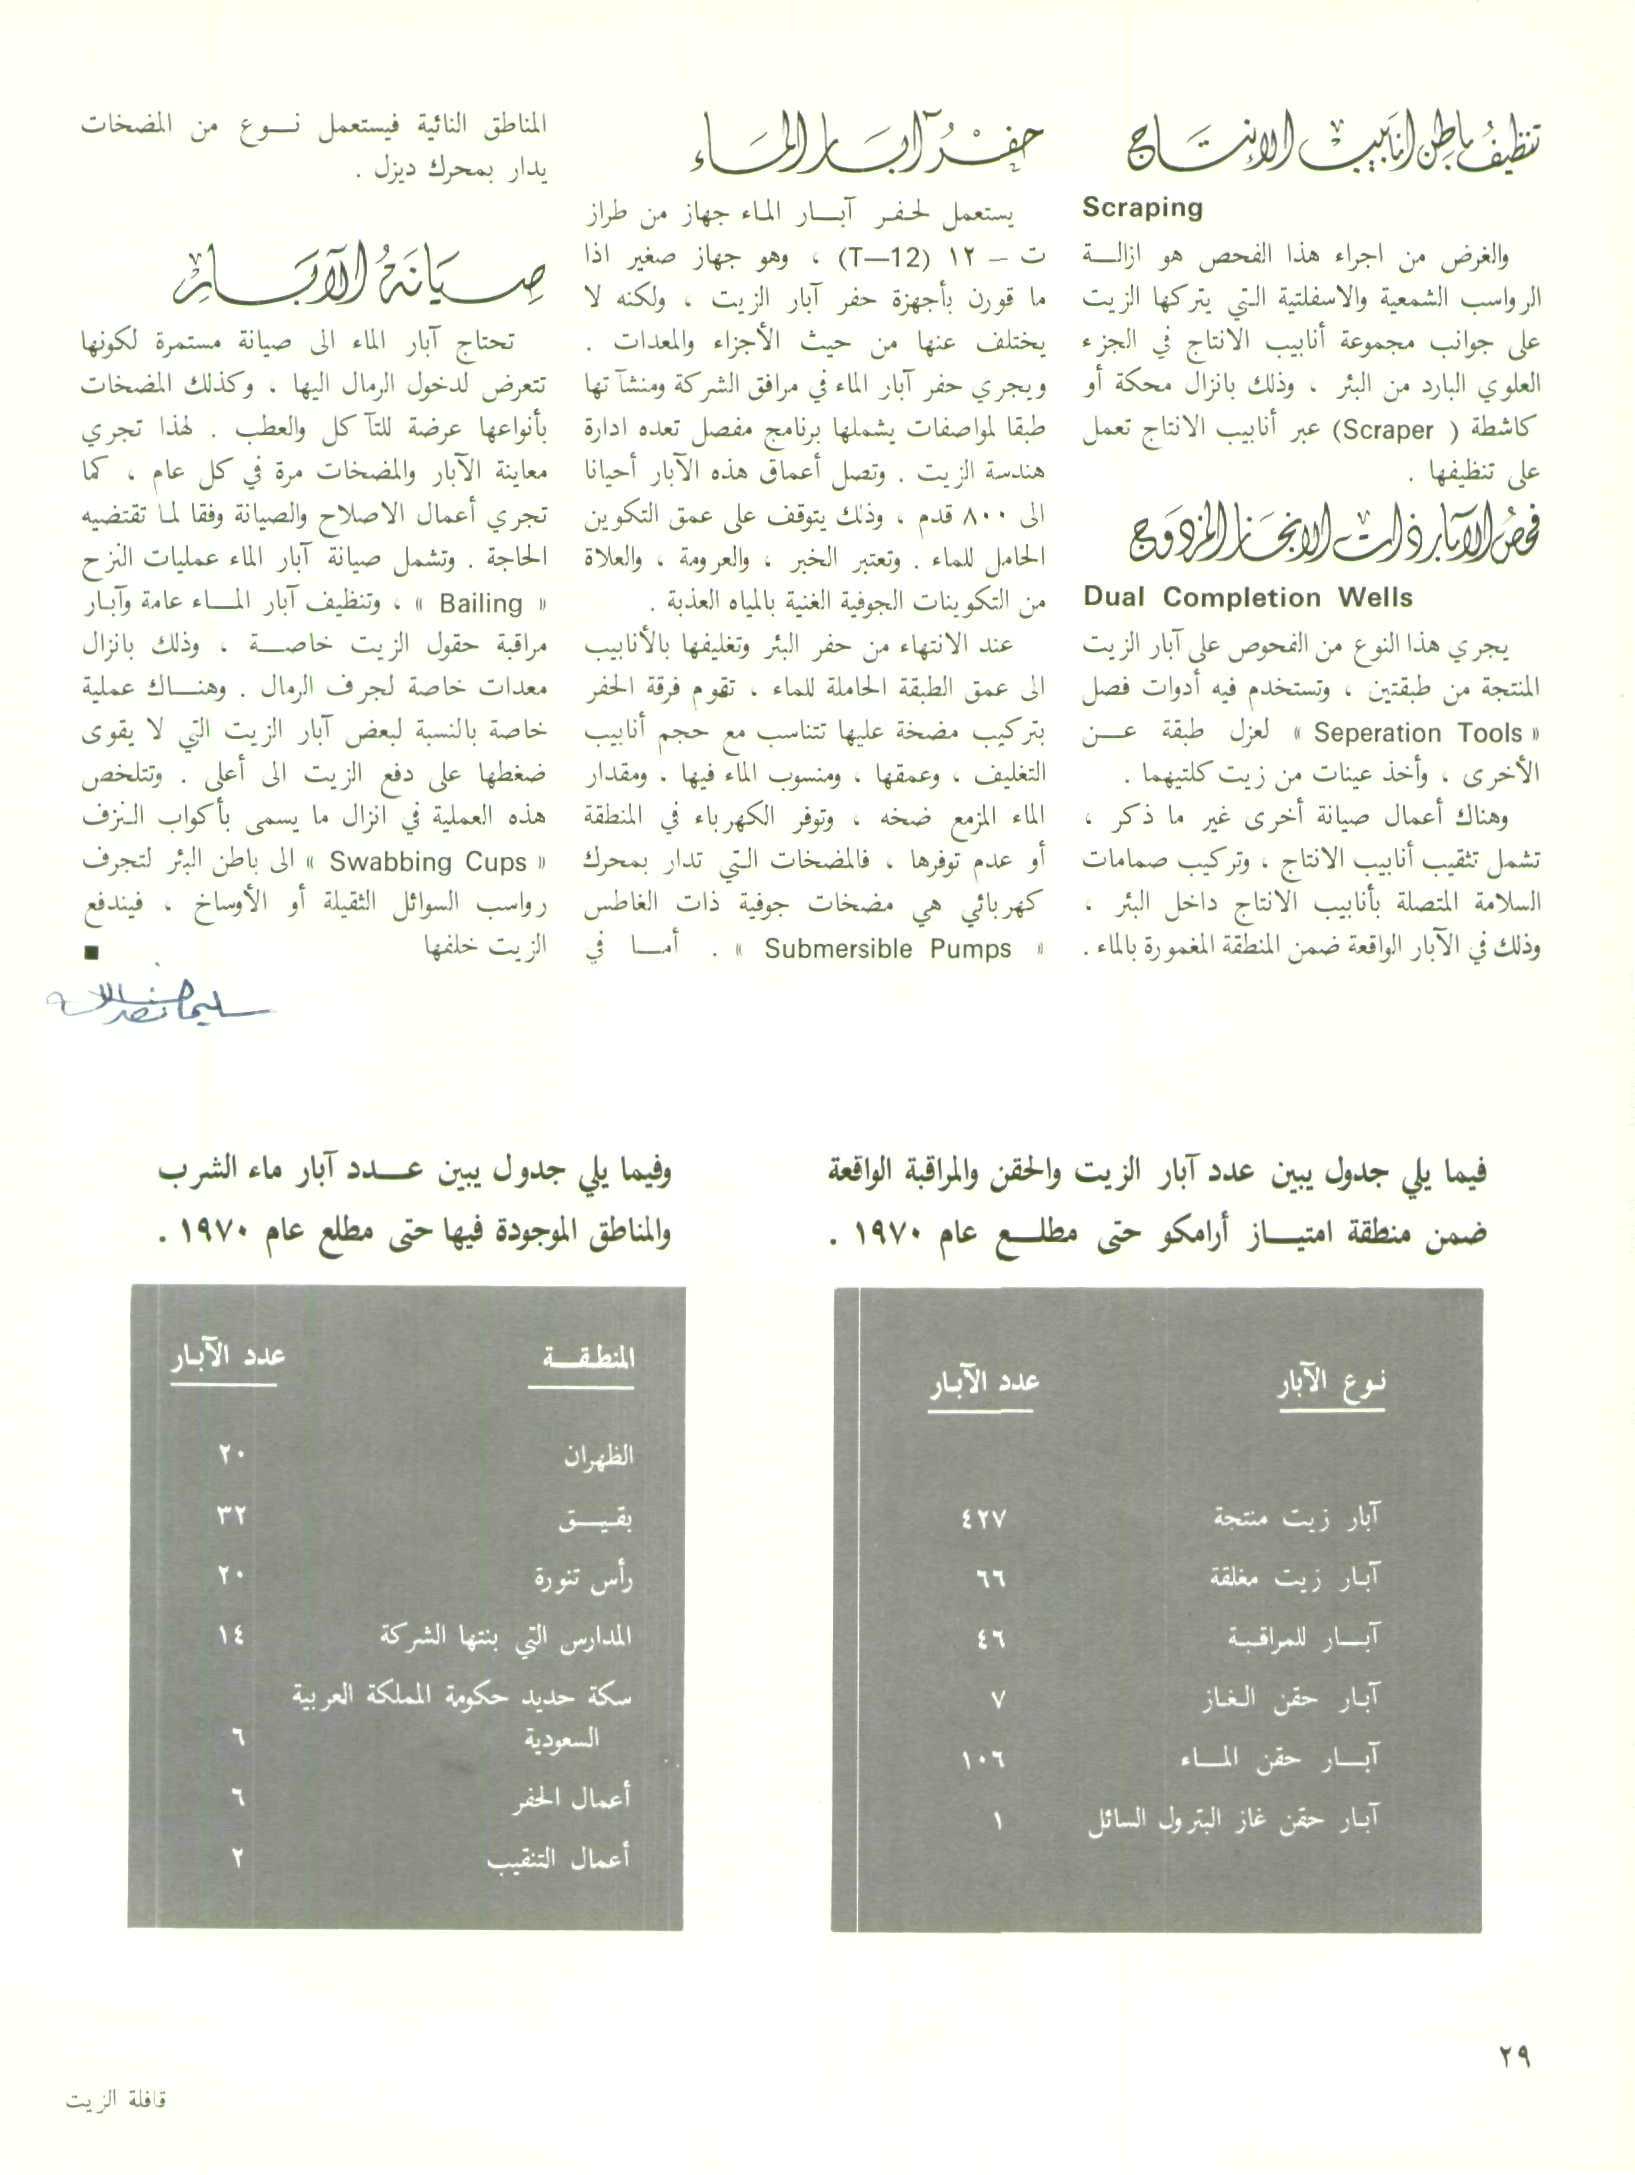 تنظيف باطن انابيب الإنتاج
Scraping
والغرض من اجراء هذا الفحص هو ازالـــة
الرواسب الشمعية والاسفلتية التي يتركها الزيت
على جوانب مجموعة أنابيب الانتاج في الجزء
العلوي البارد من البئر ، وذلك بانزال محكة أو
كاشطة ( Scraper) عبر أنابيب الانتاج تعمل
على تنظيفها .
فحص الآبار ذات الانجاز المزدوج
Dual Completion Wells
يجري هذا النوع من الفحوص على آبار الزيت
المنتجة من طبقتين ، وتستخدم فيه أدوات فصل
« Seperation Tools » لعزل طبقة عـــن
الأخرى ، وأخذ عينات من زيت كلتيهما .
وهناك أعمال صيانة أخرى غير ما ذكر ،
تشمل تثقيب أنابيب الانتاج ، وتركيب صمامات
السلامة المتصلة بأنابيب الانتاج داخل البئر ،
وذلك في الآبار الواقعة ضمن المنطقة المغمورة بالماء .
حفر آبار الماء
يستعمل لحفر آبــار الماء جهاز من طراز
ت – ١٢ (T—12) ، وهو جهاز صغير اذا
ما قورن بأجهزة حفر آبار الزيت ، ولكنه لا
يختلف عنها من حيث الأجزاء والمعدات .
ويجري حفر آبار الماء في مرافق الشركة ومنشآتها
طبقا لمواصفات يشملها برنامج مفصل تعده ادارة
هندسة الزيت . وتصل أعماق هذه الآبار أحيانا
الى ٨٠٠ قدم ، وذلك يتوقف على عمق التكوين
الحامل للماء . وتعتبر الخبر ، والعرومة ، والعلاة
من التكوينات الجوفية الغنية بالمياه العذبة .
عند الانتهاء من حفر البئر وتغليفها بالأنابيب
الى عمق الطبقة الحاملة للماء ، تقوم فرقة الحفر
بتركيب مضخة عليها تتناسب مع حجم أنابيب
التغليف ، وعمقها ، ومنسوب الماء فيها . ومقدار
الماء المزمع ضخه ، وتوفر الكهرباء في المنطقة
أو عدم توفرها ، فالمضخات التي تدار بمحرك
كهربائي هي مضخات جوفية ذات الغاطس
« Submersible Pumps » . أمــا في
المناطق النائية فيستعمل نـــوع من المضخات
يدار بمحرك ديزل .
صيانة الآبار
تحتاج آبار الماء الى صيانة مستمرة لكونها
تتعرض لدخول الرمال اليها ، وكذلك المضخات
بأنواعها عرضة للتآكل والعطب . لهذا تجري
معاينة الآبار والمضخات مرة في كل عام ، كما
تجري أعمال الاصلاح والصيانة وفقا لما تقتضيه
الحاجة . وتشمل صيانة آبار الماء عمليات النزح
« Bailing » ، وتنظيف آبار المــاء عامة وآبار
مراقبة حقول الزيت خاصـــة ، وذلك بانزال
معدات خاصة لجرف الرمال . وهنــاك عملية
خاصة بالنسبة لبعض آبار الزيت التي لا يقوى
ضغطها على دفع الزيت الى أعلى . وتتلخص
هذه العملية في انزال ما يسمى بأكواب النزف
« Swabbing Cups » الى باطن البئر لتجرف
رواسب السوائل الثقيلة أو الأوساخ ، فيندفع
الزيت خلفها ■
فيما يلي جدول يبين عدد آبار الزيت والحقن والمراقبة الواقعة
ضمن منطقة امتيــاز أرامكو حتى مطلــع عام ١٩٧٠ .
نوع الآبار عدد الآبار
آبار زيت منتجة ٤٢٧
آبار زيت مغلقة ٦٦
آبــار للمراقبة ٤٦
آبار حقن الغاز ٧
آبــار حقن المــاء ١٠٦
آبار حقن غاز البترول السائل ١
وفيما يلي جدول يبين عــدد آبار ماء الشرب
والمناطق الموجودة فيها حتى مطلع عام ١٩٧٠ .
المنطقــة عدد الآبار
الظهران ٢٠
بقيــق ٣٢
رأس تنورة ٢٠
المدارس التي بنتها الشركة ١٤
سكة حديد حكومة المملكة العربية
السعودية ٦
أعمال الحفر ٦
أعمال التنقيب ٢
٢٩
قافلة الزيت